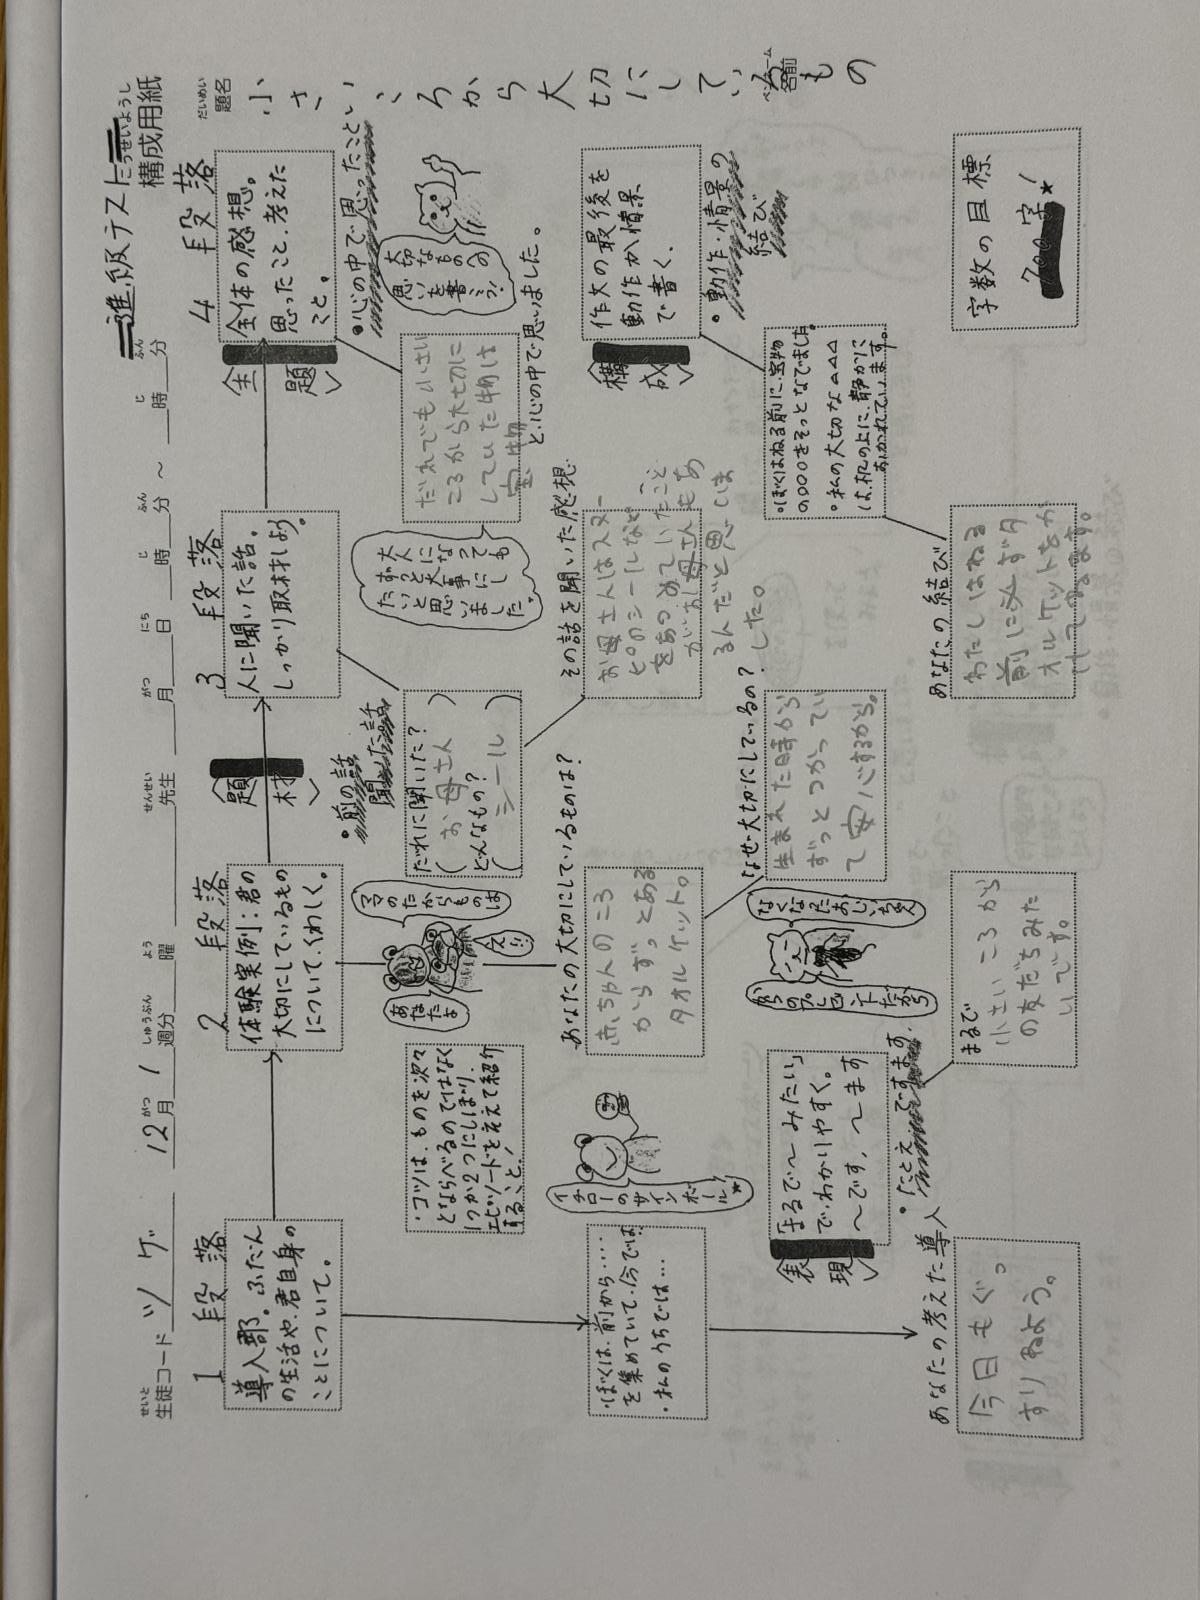 進級テスト
構成用紙
生徒コード ツゲ 12月1週分 曜 先生 月 日 時 分 ～ 時 分
せいと がつ しゅうぶん よう せんせい がつ にち じ ふん じ ふん
だいめい
題名
小さいころから大切にしているもの
ペンネーム
名前
1段落
導入部。ふだん
の生活や、君自身の
ことについて。
・ぼくは、前から……
を集めていて、今では…
・私のうちでは…
あなたの考えた導入
今日もぐっ
すりねよう。
2段落
体験実例：君の
大切にしているもの
について、くわしく。
・コツは、ものを次々
とならべるのではなく
1つか2つにしぼり、
エピソードを交えて紹介
すること！
ママのたからものは
あなたよ
え!!
イチローのサインボール★
あなたの大切にしているものは？
赤ちゃんのころ
からずっとある
タオルケット。
なぜ、大切にしているの？
生まれた時から
ずっとつかってい
て安心するから。
なくなったおじいちゃん
からのプレゼントだから
〈表現〉
「まるで～みたい」
で、わかりやすく。
～です、～ます
・たとえ
ですます
まるで
小さいころから
の友だちみた
いです。
〈題材〉
3段落
人に聞いた話。
しっかり取材しよう。
・前の話
聞いた話
だれに聞いた？
（お母さん）
どんなもの？
（シール）
その話を聞いた感想
お母さんはスヌー
ピーのシールなど
をあつめていたこと
がお母さんもあ
るんだと思いま
した。
〈主題〉
4段落
全体の感想。
思ったこと、考えた
こと。
・心の中で思ったこと
大切なものへの
思いを書こう！
だれでも小さい
ころから大切に
していた物は
宝物
と、心の中で思いました。
大人になっても
ずっと大事にし
たいと思い
ました。
〈構成〉
作文の最後を
動作か情景
で書く、
・動作・情景の
結び
・ぼくはねる前に、宝物
の○○○をそっとなでました。
・私の大切な△△△
は、机の上に、静かに
おかれています。
あなたの結び
わたしはねる
前に必ずタ
オルケットをか
けてねます。
字数の目標
700字★